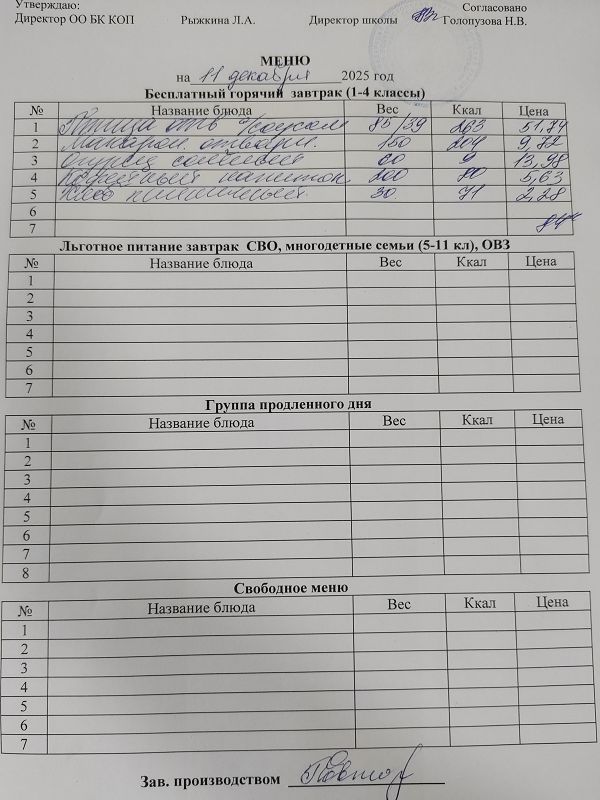 Утверждаю: Согласовано
Директор ОО БК КОП Рыжкина Л.А. Директор школы Голопузова Н.В.
МЕНЮ
на 11 декабря 2025 год
Бесплатный горячий завтрак (1-4 классы)
№ Название блюда Вес Ккал Цена
1 Птица отв с/соусом 85/39 263 51,74
2 Макарон. отварн. 150 204 9,72
3 Огурец соленый 60 9 13,98
4 Кофейный напиток 200 80 5,63
5 Хлеб пшеничный 30 71 2,28
6
7
Льготное питание завтрак СВО, многодетные семьи (5-11 кл), ОВЗ
№ Название блюда Вес Ккал Цена
1
2
3
4
5
6
7
Группа продленного дня
№ Название блюда Вес Ккал Цена
1
2
3
4
5
6
7
8
Свободное меню
№ Название блюда Вес Ккал Цена
1
2
3
4
5
6
7
Зав. производством